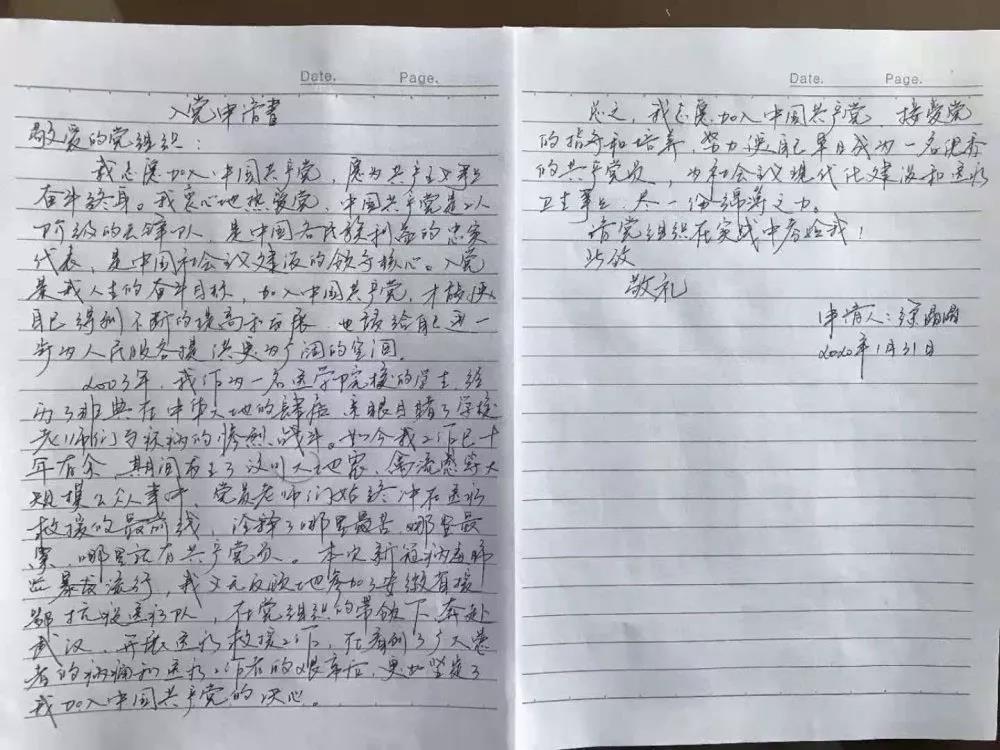 Date. Page.
入党申请書
敬爱的党组织：
我志愿加入中国共产党，愿为共产主义事业
奋斗终身。我衷心地热爱党，中国共产党是工人
阶级的先锋队，是中国各民族利益的忠实
代表，是中国社会主义建设的领导核心。入党
是我人生的奋斗目标，加入中国共产党，才能使
自己得到不断的提高和发展，也该给自己进一
步为人民服务提供更为广阔的空间。
2003年，我作为一名医学院校的学生，经
历了非典在中华大地的肆虐，亲眼目睹了学校
老师们与疾病的惨烈战斗。如今我工作已十
年有余，其间发生了汶川大地震、禽流感等大
规模公众事件，党员老师们始终冲在医疗
救援的最前线，诠释了哪里最苦、哪里最
累，哪里就有共产党员。本次新冠病毒肺
炎暴发流行，我义无反顾地参加了安徽省援
鄂抗疫医疗队，在党组织的带领下，奔赴
武汉，开展医疗救援工作，在看到了广大患
者的病痛和医疗工作者的艰辛后，更加坚定了
我加入中国共产党的决心。
Date. Page.
总之，我志愿加入中国共产党，接受党
的指导和培养，努力使自己早日成为一名优秀
的共产党员，为社会主义现代化建设和医疗
卫生事业，尽一份绵薄之力。
请党组织在实战中考验我！
此致
敬礼
申请人：
2020年1月31日